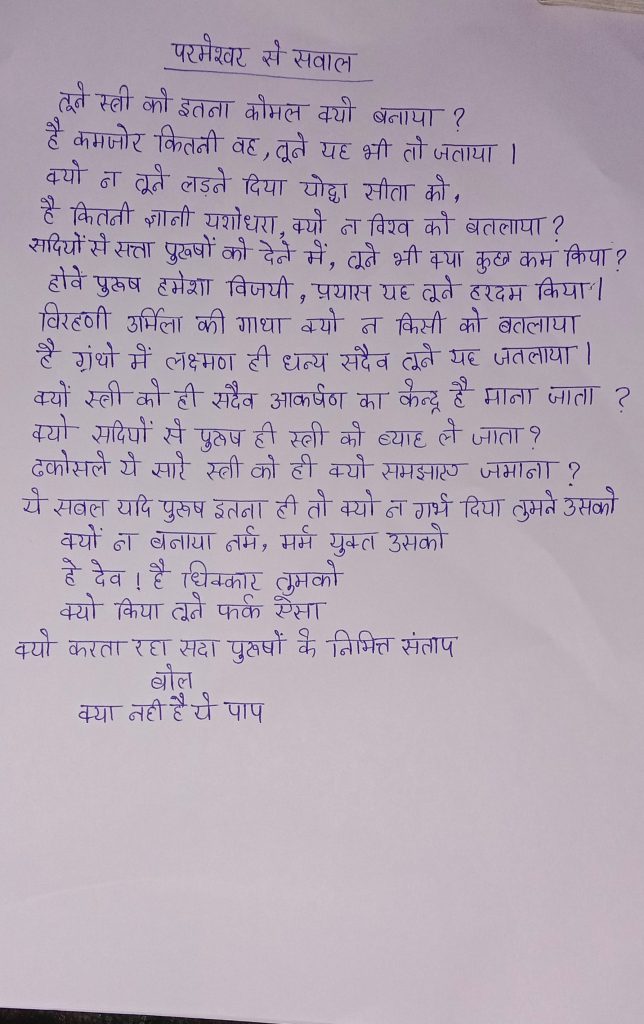 परमेश्वर से सवाल
तूने स्त्री को इतना कोमल क्यो बनाया ?
है कमजोर कितनी वह, तूने यह भी तो जताया ।
क्यो न तूने लड़ने दिया योद्धा सीता को,
है कितनी ज्ञानी यशोधरा, क्यो न विश्व को बतलाया ?
सदियों से सत्ता पुरुषों को देने में, तूने भी क्या कुछ कम किया ?
होवें पुरुष हमेशा विजयी, प्रयास यह तूने हरदम किया ।
विरहणी उर्मिला की गाथा क्यो न किसी को बतलाया
है ग्रंथो में लक्ष्मण ही धन्य सदैव तूने यह जतलाया ।
क्यों स्त्री को ही सदैव आकर्षण का केन्द्र है माना जाता ?
क्यो सदियों से पुरुष ही स्त्री को ब्याह ले जाता ?
ढकोसले ये सारे स्त्री को ही क्यो जमाना ?
ये सवल यदि पुरुष इतना ही तो क्यो न गर्भ दिया तुमने उसको
क्यों न बनाया नर्म, मर्म युक्त उसको
हे देव ! है धिक्कार तुमको
क्यो किया तूने फर्क ऐसा
क्यो करता रहा सदा पुरुषों के निमित्त संताप
बोल
क्या नही है ये पाप